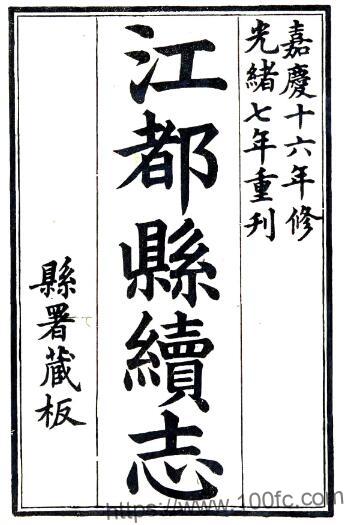 嘉慶十六年修
光緒七年重刊
江都縣續志
縣署藏板
https://www.100fc.com